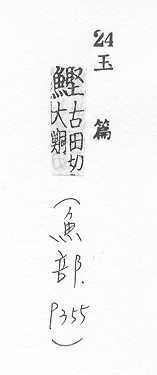 24
玉篇
鰹古田切
大鮦
(魚部. P355)